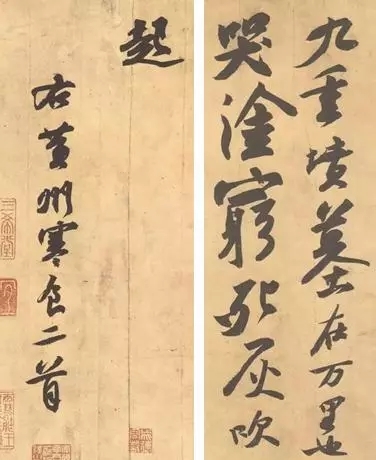 九重墳墓在万里也
哭塗窮死灰吹
起
右黄州寒食二首
三希堂